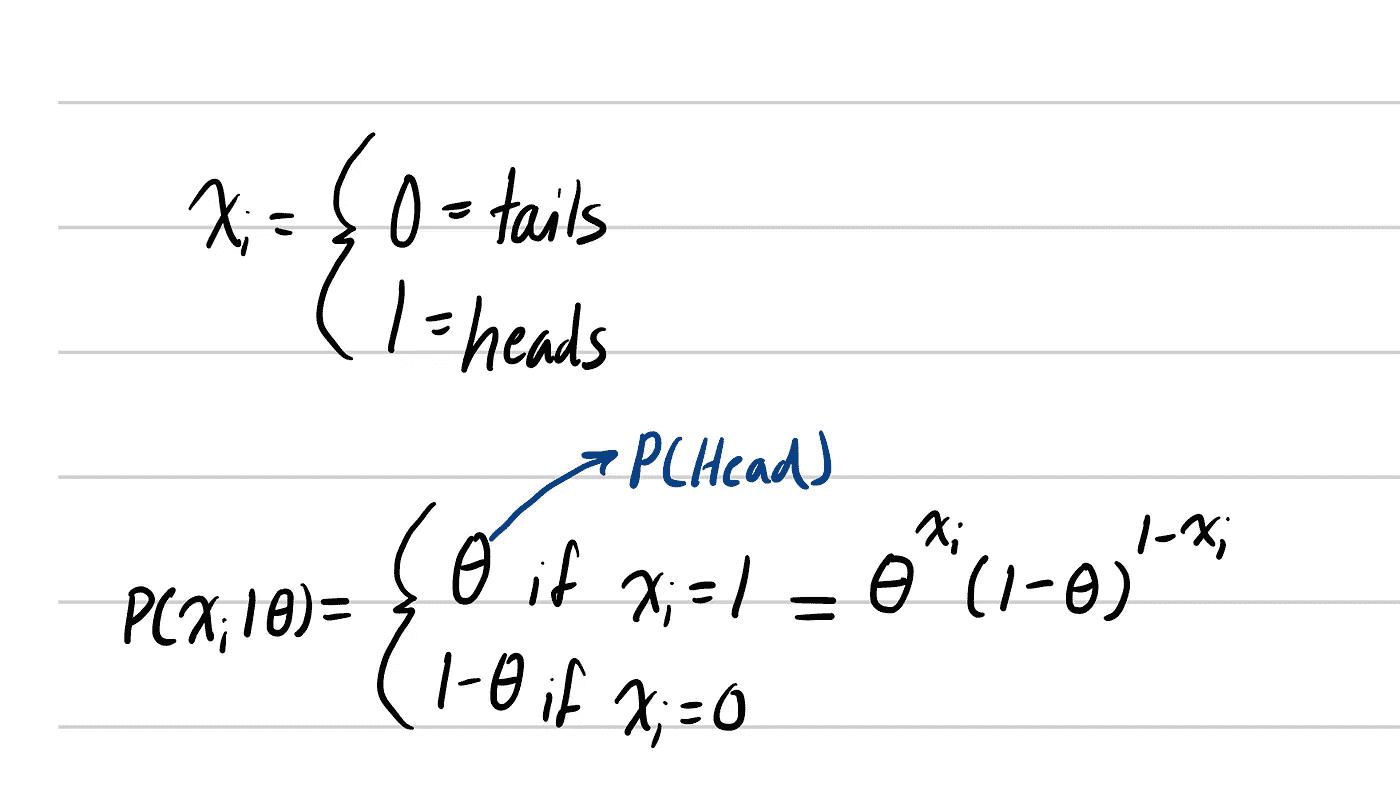 xᵢ = { 0 = tails
1 = heads
P(Head)
P(xᵢ|θ) = { θ if xᵢ = 1 = θ^xᵢ (1-θ)^1-xᵢ
1-θ if xᵢ = 0